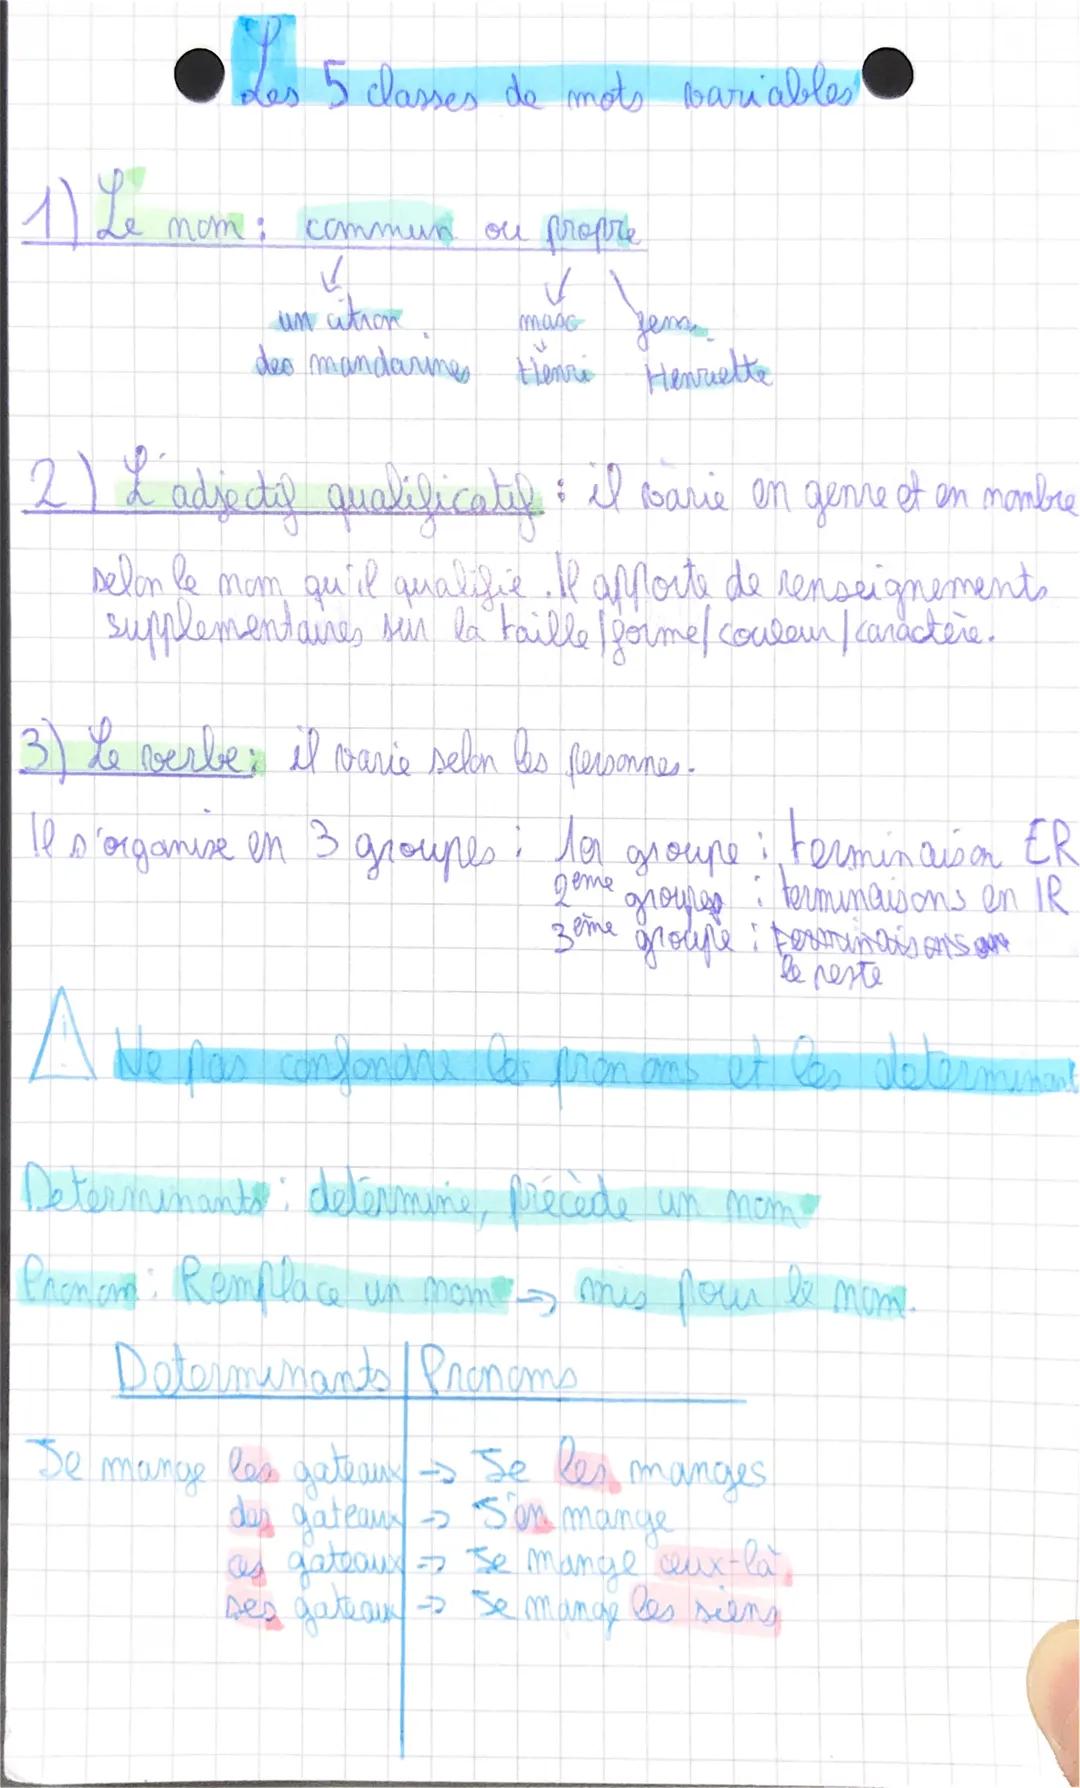 Les 5 classes de mots variables
1) Le nom : commun ou propre
un citron masc fem
des mandarines Henri Henriette
2) L'adjectif qualificatif : il varie en genre et en nombre
selon le nom qu'il qualifie. Il apporte de renseignements
supplementaires sur la taille/forme/couleur/caractère.
3) Le verbe : il varie selon les personnes.
Il s'organise en 3 groupes : 1er groupe : terminaison ER
2ème groupes : terminaisons en IR
3ème groupe : terminaisons
le reste
! Ne pas confondre les pronoms et les determinant
Determinants : détermine, précède un nom
Pronom : Remplace un nom → mis pour le nom.
Determinants | Pronoms
Je mange les gateaux → Je les manges
des gateaux → J'en mange
ces gateaux → Je mange ceux-là
ses gateaux → Je mange les siens